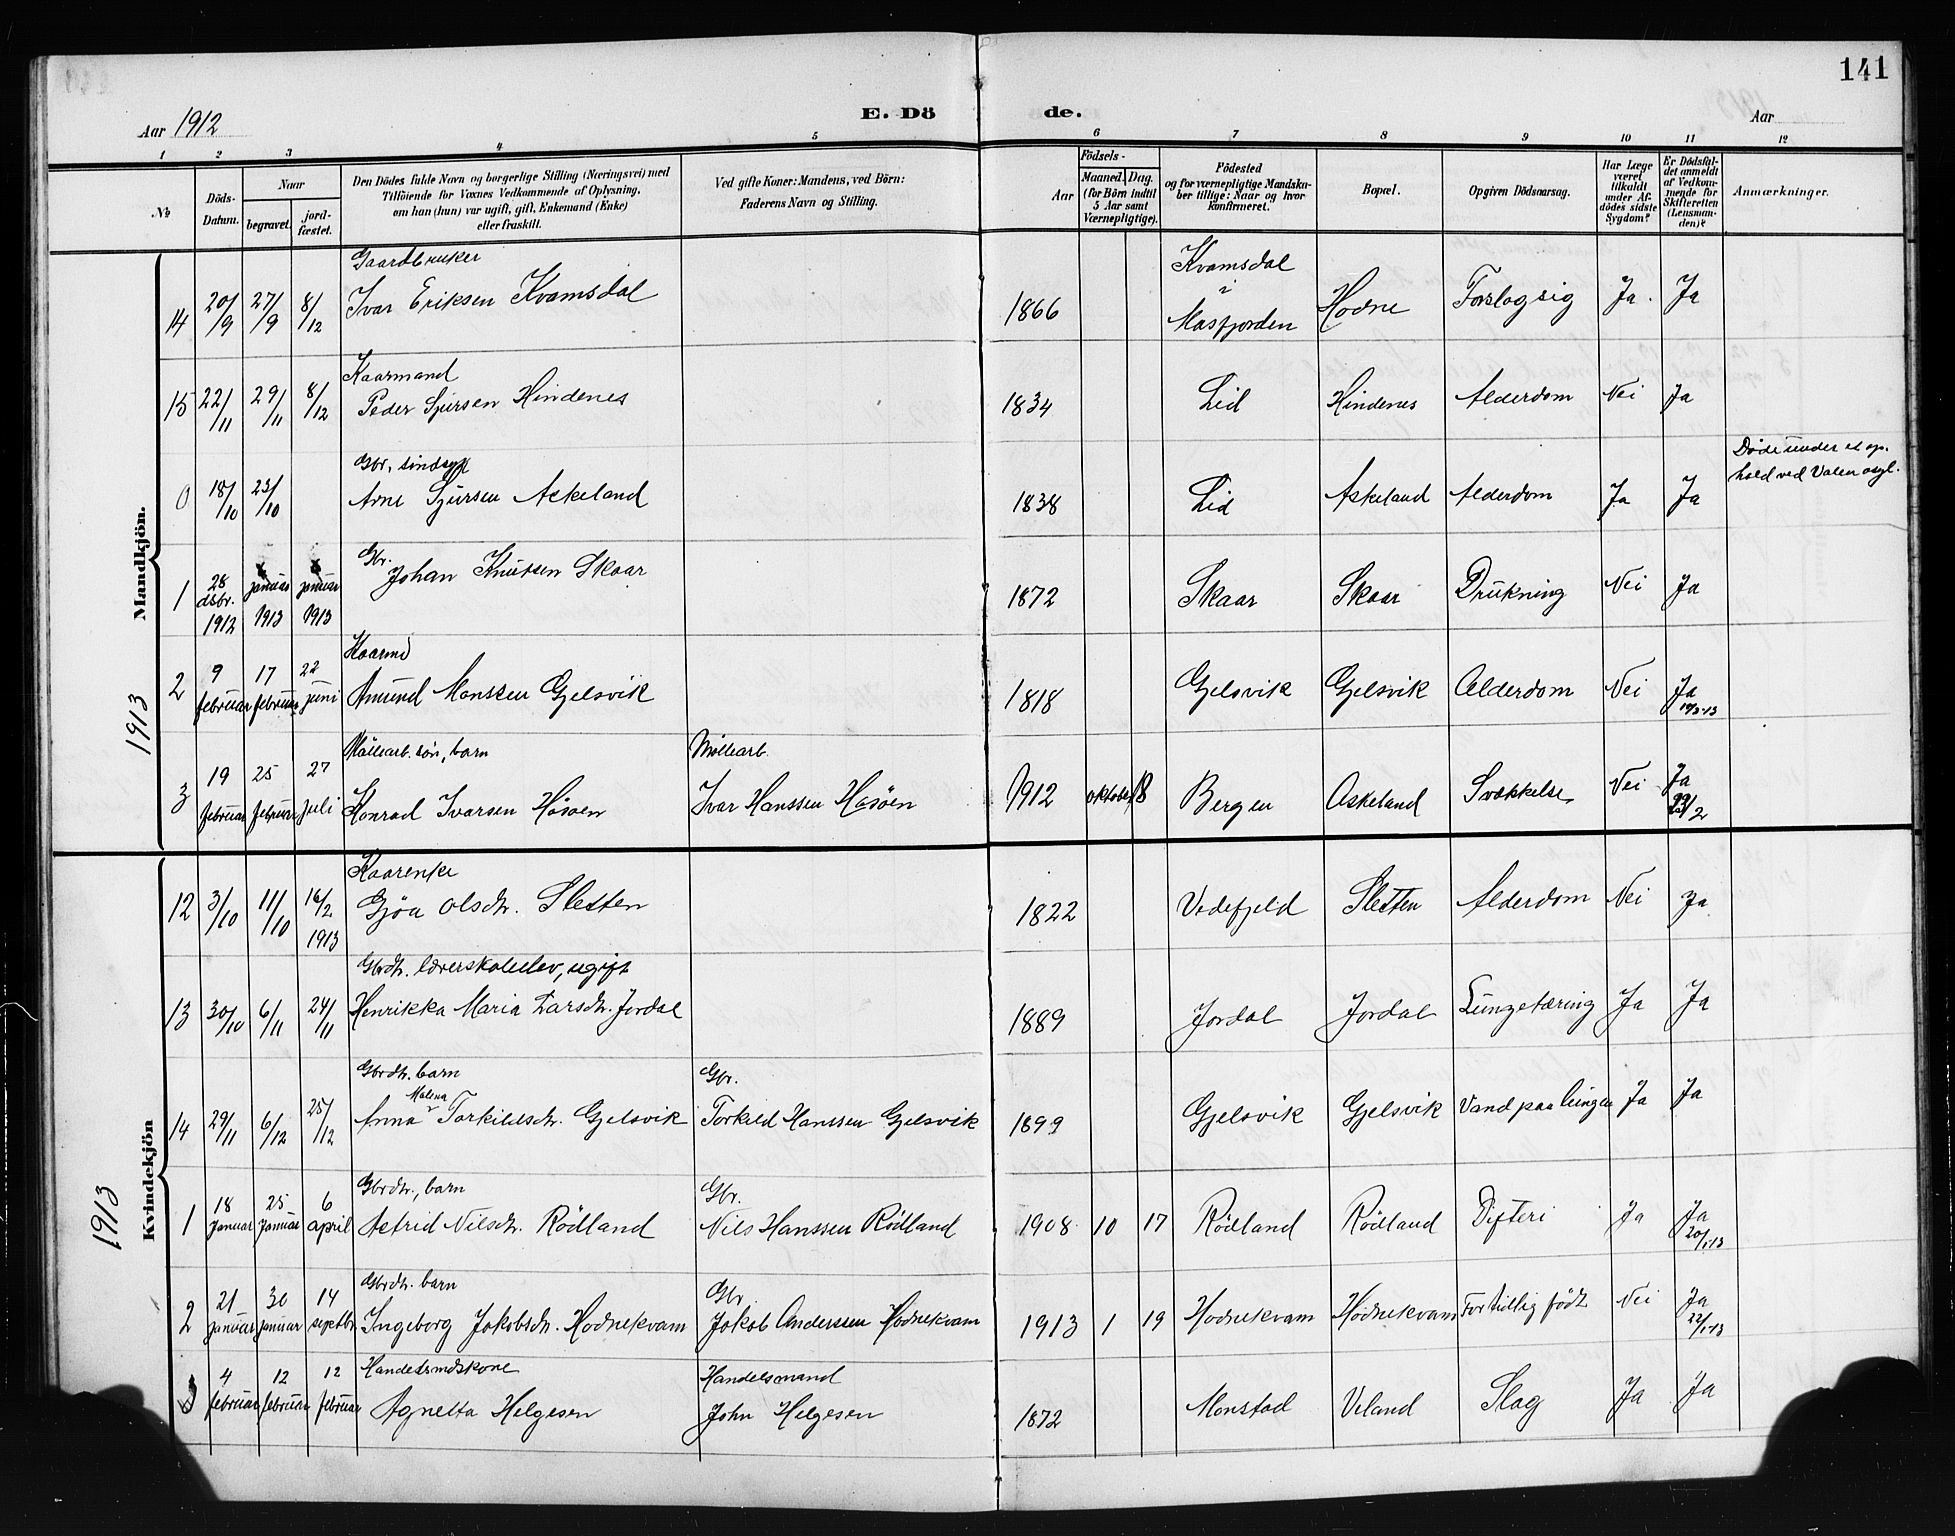 141
Aar 1912
E. Dö de.
Aar
1 2 3 4 5 6 7 8 9 10 11 12
№
Döds-Datum.
Naar
begravet.
jord-fæstet.
Den Dödes fulde Navn og borgerlige Stilling (Næringsvei) med
Tilföiende for Voxnes Vedkommende af Oplysning,
om han (hun) var ugift, gift, Enkemand (Enke)
eller fraskilt.
Ved gifte Koner: Mandens, ved Börn:
Faderens Navn og Stilling.
Födsels-
Aar
Maaned. Dag.
(for Börn indtil
5 Aar samt
Værnepligtige).
Födested
og for værnepligtige Mandska-
ber tillige: Naar og hvor
konfirmeret.
Bopæl.
Opgiven Dödsaarsag.
Har Læge
været
tilkaldt
under Af-
dödes sidste
Sygdom?
Er Dödsfal-
det anmeldt
af Vedkom-
mende for
Skifteretten
(Lensman-
den)?
Anmærkninger.
Mandkjön.
Gaardbruker
14 20/9 27/9 8/12 Ivar Eriksen Kvamsdal 1866 Kvamsdal i Masfjorden Hodne Forslog sig Ja. Ja
Kaarmand
15 22/11 29/11 8/12 Peder Sjursen Hindenes 1834 Lid Hindenes Alderdom Nei Ja
Gbr, sindsyk
0 18/10 23/10 Arne Sjursen Askeland 1838 Lid Askeland Alderdom Ja Ja Døde under et op-
hold ved Valen asyl.
Gbr.
1 28 dsbr. 1912 januar 1913 januar 1913 Johan Knutsen Skaar 1872 Skaar Skaar Drukning Nei Ja
1913
Kaarmd
2 9 februar 17 februar 22 juni Amund Monssen Gjelsvik 1818 Gjelsvik Gjelsvik Alderdom Nei Ja
Møllearb. søn, barn Møllearb.
3 19 februar 25 februar 27 juli Konrad Ivarsen Håsøen Ivar Hanssen Hasøen 1912 oktober 18 Bergen Askeland Svækkelse Nei Ja
Kvindekjön
Kaarenke
12 3/10 11/10 16/2 1913 Gjöa Olsdtr. Sletten 1822 Vedefjeld Sletten Alderdom Nei Ja
Gbrdtr. lærerskoleelev, ugift
13 30/10 6/11 24/11 Henrikka Maria Larsdtr. Jordal 1889 Jordal Jordal Lungetæring Ja Ja
Gbrdtr. barn Gbr.
14 29/11 6/12 25/12 Anna Malena Torkildsdtr. Gjelsvik Torkild Hanssen Gjelsvik 1899 Gjelsvik Gjelsvik Vand paa lungen Ja Ja
1913
Gbrdtr., barn Gbr.
1 18 Januar 25 Januar 6 april Astrid Nilsdtr. Rödland Nils Hanssen Rödland 1908 10 17 Rödland Rödland Difteri Ja Ja 20/1-13
Gbrdtr. barn Gbr.
2 21 januar 30 januar 14 septbr. Ingeborg Jakobsdtr. Hodnekvam Jakob Anderssen Hodnekvam 1913 1 19 Hodnekvam Hodnekvam For tidlig født Nei Ja 22/1-13
Handelsmdskone Handelsmand
3 4 februar 12 februar 12 februar Agnetta Helgesen John Helgesen 1872 Monstad Veland Slag Ja Ja